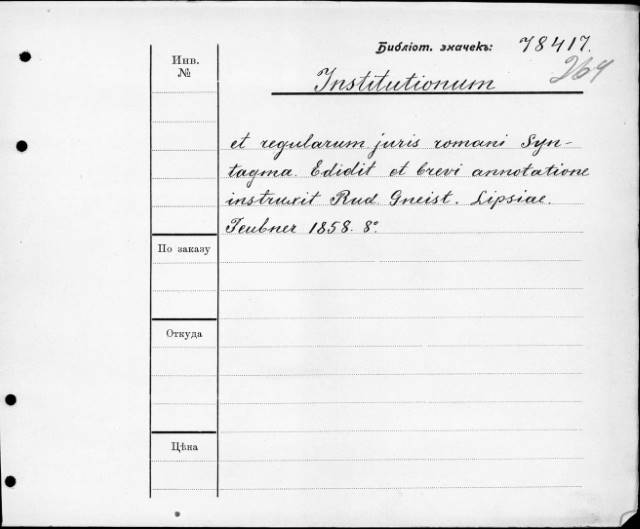 Библіот. значекъ: 78417.
264
Инв.
№
Institutionum
et regularum juris romani Syn-
tagma. Edidit et brevi annotatione
instruxit Rud. Gneist. Lipsiae.
Teubner 1858. 8°.
По заказу
Откуда
Цѣна